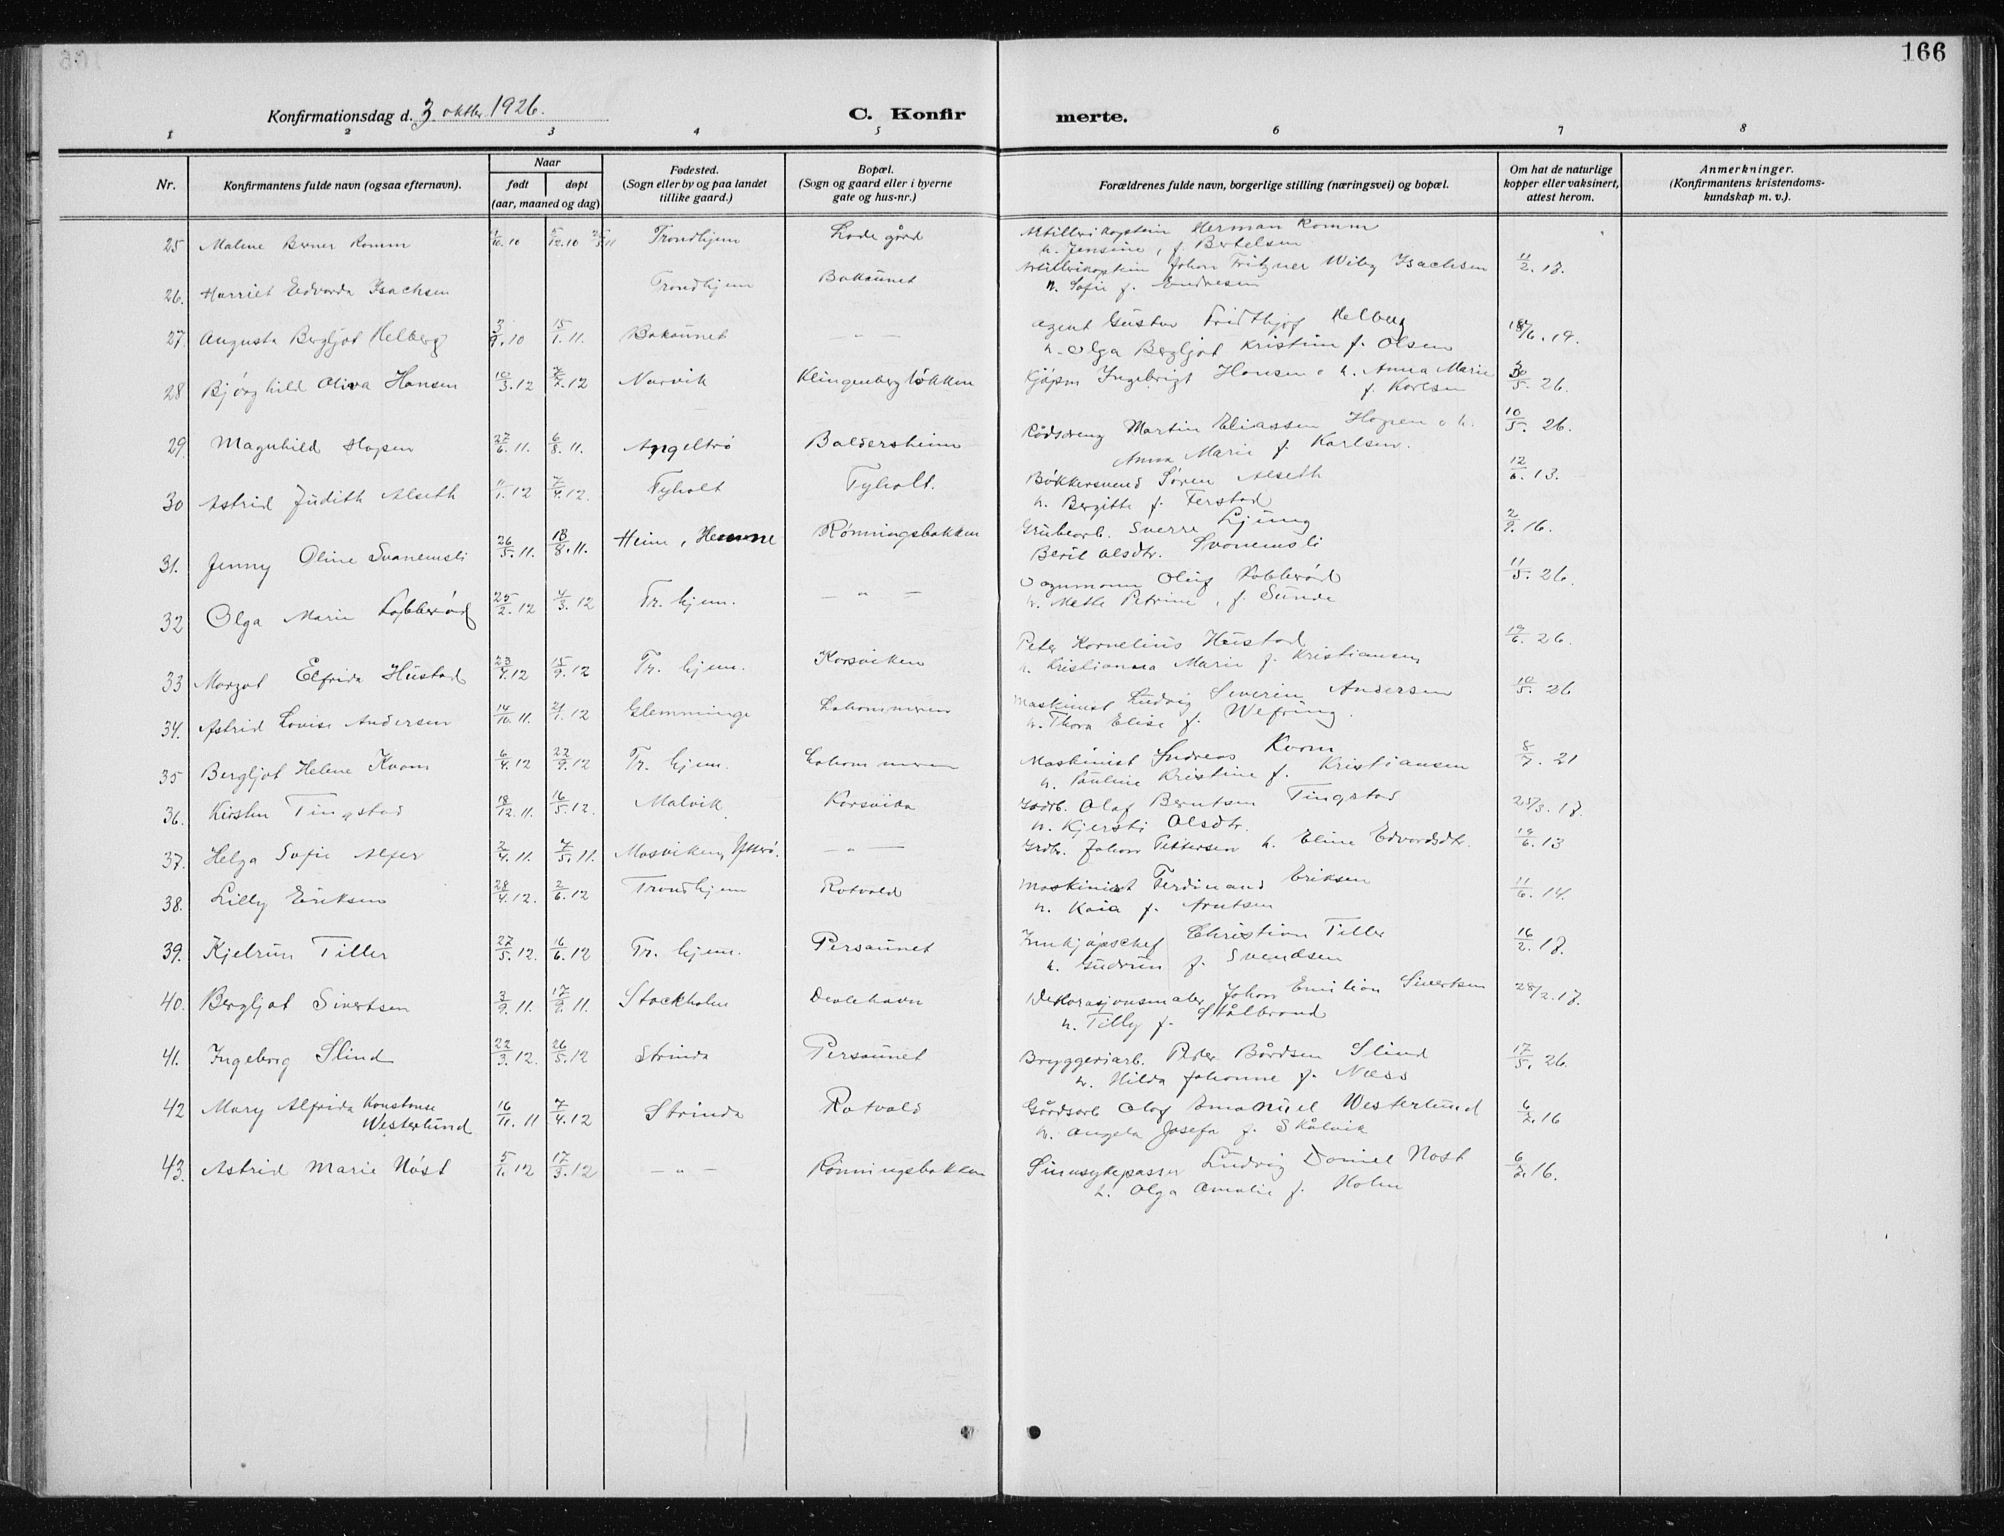 166
Konfirmationsdag d. 3 oktbr. 1926.
C. Konfir merte.
1 2 3 4 5 6 7 8
Nr.
Konfirmantens fulde navn (ogsaa efternavn).
Naar
født døpt
(aar, maaned og dag)
Fødested.
(Sogn eller by og paa landet
tillike gaard.)
Bopæl.
(Sogn og gaard eller i byerne
gate og hus-nr.)
Forældrenes fulde navn, borgerlige stilling (næringsvei) og bopæl.
Om hat de naturlige
kopper eller vaksinert,
attest herom.
Anmerkninger.
(Konfirmantens kristendoms-
kundskap m. v.).
25 Malene Berner Romm 5/12.10 Trondhjem Lade gård Artillerikaptein Herman Romm
h. Jensine, f. Bertelsen
26. Harriet Edvarda Isachsen Trondhjem Bakaunet Artillerikaptein Johan Fritzner Wiby Isachsen 11/2.18.
h. Sofie f. Endresen
27. Augusta Bergljot Helberg 3/9.10 15/1.11. Bakaunet — " — Agent Gustav Fridthjof Helberg 18/6.19.
h. Olga Bergljot Kristine f. Olsen
28 Bjørghild Oliva Hansen 10/3.12 7/7.12 Narvik Klingenbergløkken Kjøpm Ingebrigt Hansen o h. Anna Marie 30/5.26.
f. Karlsen
29. Magnhild Hopen 27/6.11. 6/8.11. Angeltrø Baldersheim Rådsdreng Martin Eliassen Hopen o h. 10/5.26.
Anna Marie f. Karlsen.
30 Astrid Judith Alseth 11/1.12 7/4.12. Tyholt Tyholt. Bøkkersvend Søren Alseth 12/6.13.
h. Bergitte f. Ferstad
31. Jenny Oline Svanemsli 26/5.11. 13/8.11. Heim, Hemne Rønningsbakken Grubearb. Sverre Ljung 2/9.16.
Berit Olsdtr. Svanemsli
32 Olga Marie Lobberød 25/2.12 4/3.12 Tr.hjem. — " — Oluf Lobberød 11/5.26.
h. Mette Petrine, f. Sunde
33 Margot Elfrida Hustad 23/4.12 15/9.12 Tr.hjem. Korsviken Peter Kornelius Hustad 19/6.26.
h. Kristianna Marie f. Kristiansen
34. Astrid Lovise Andersen 14/10.11. 21/1.12 Glemminge Ladehammeren Maskinist Ludvig Severin Andersen 10/5.26
h. Thora Elise f. Wefring.
35 Bergljot Helene Kvam 6/4.12 22/9.12 Tr.hjem. Ladehammeren Maskinist Andreas Kvam 8/7.21
h. Pauline Kristine f. Kristiansen
36. Kirsten Tingstad 18/12.11. 16/5.12. Malvik Korsvika Gårdb. Olaf Berntsen Tingstad 25/3.18.
h. Kjersti Olsdtr.
37. Helga Sofie Alfer 2/4.11. 7/5.11. Mosviken, Ytterø. — " — Grdbr. Johan Pettersen h. Eline Edvardsdtr. 19/6.13
38. Lilly Eriksen 28/4.12. 2/6.12 Trondhjem Rotvold Maskinist Ferdinand Eriksen 11/6.14.
h. Kaia f. Arntsen
39. Kjelrun Tiller 27/5.12. 16/6.12 Tr.hjem. Persaunet Innkjøpschef Christian Tiller 16/2.18.
h. Gudrun f. Svendsen
40. Bergljot Sivertsen 3/9.11. 17/9.11. Stockholm Devlehavn Dekorasjonsmaler Johan Emilian Sivertsen 28/2.18.
h. Tilly f. Stålbrand
41. Ingeborg Slind 22/3.12. 26/5.12 Strinda Persaunet Bryggeriarb. Peder Bårdsen Slind 17/5.26.
h. Hilda Johanne f. Næss
42 Mary Alfrida Konstanse 16/11.11 7/4.12 Strinda Rotvold Gårdsarb Olof Emanuel Westerlund 6/2.16
Westerlund h. Angela Josefa f. Skålvik
43. Astrid Marie Nøst 5/1.12 17/3.12 — " — Rønningsbakken Sinnsykepasser Ludvig Daniel Nøst 6/2.16.
h. Olga Amalie f. Holm